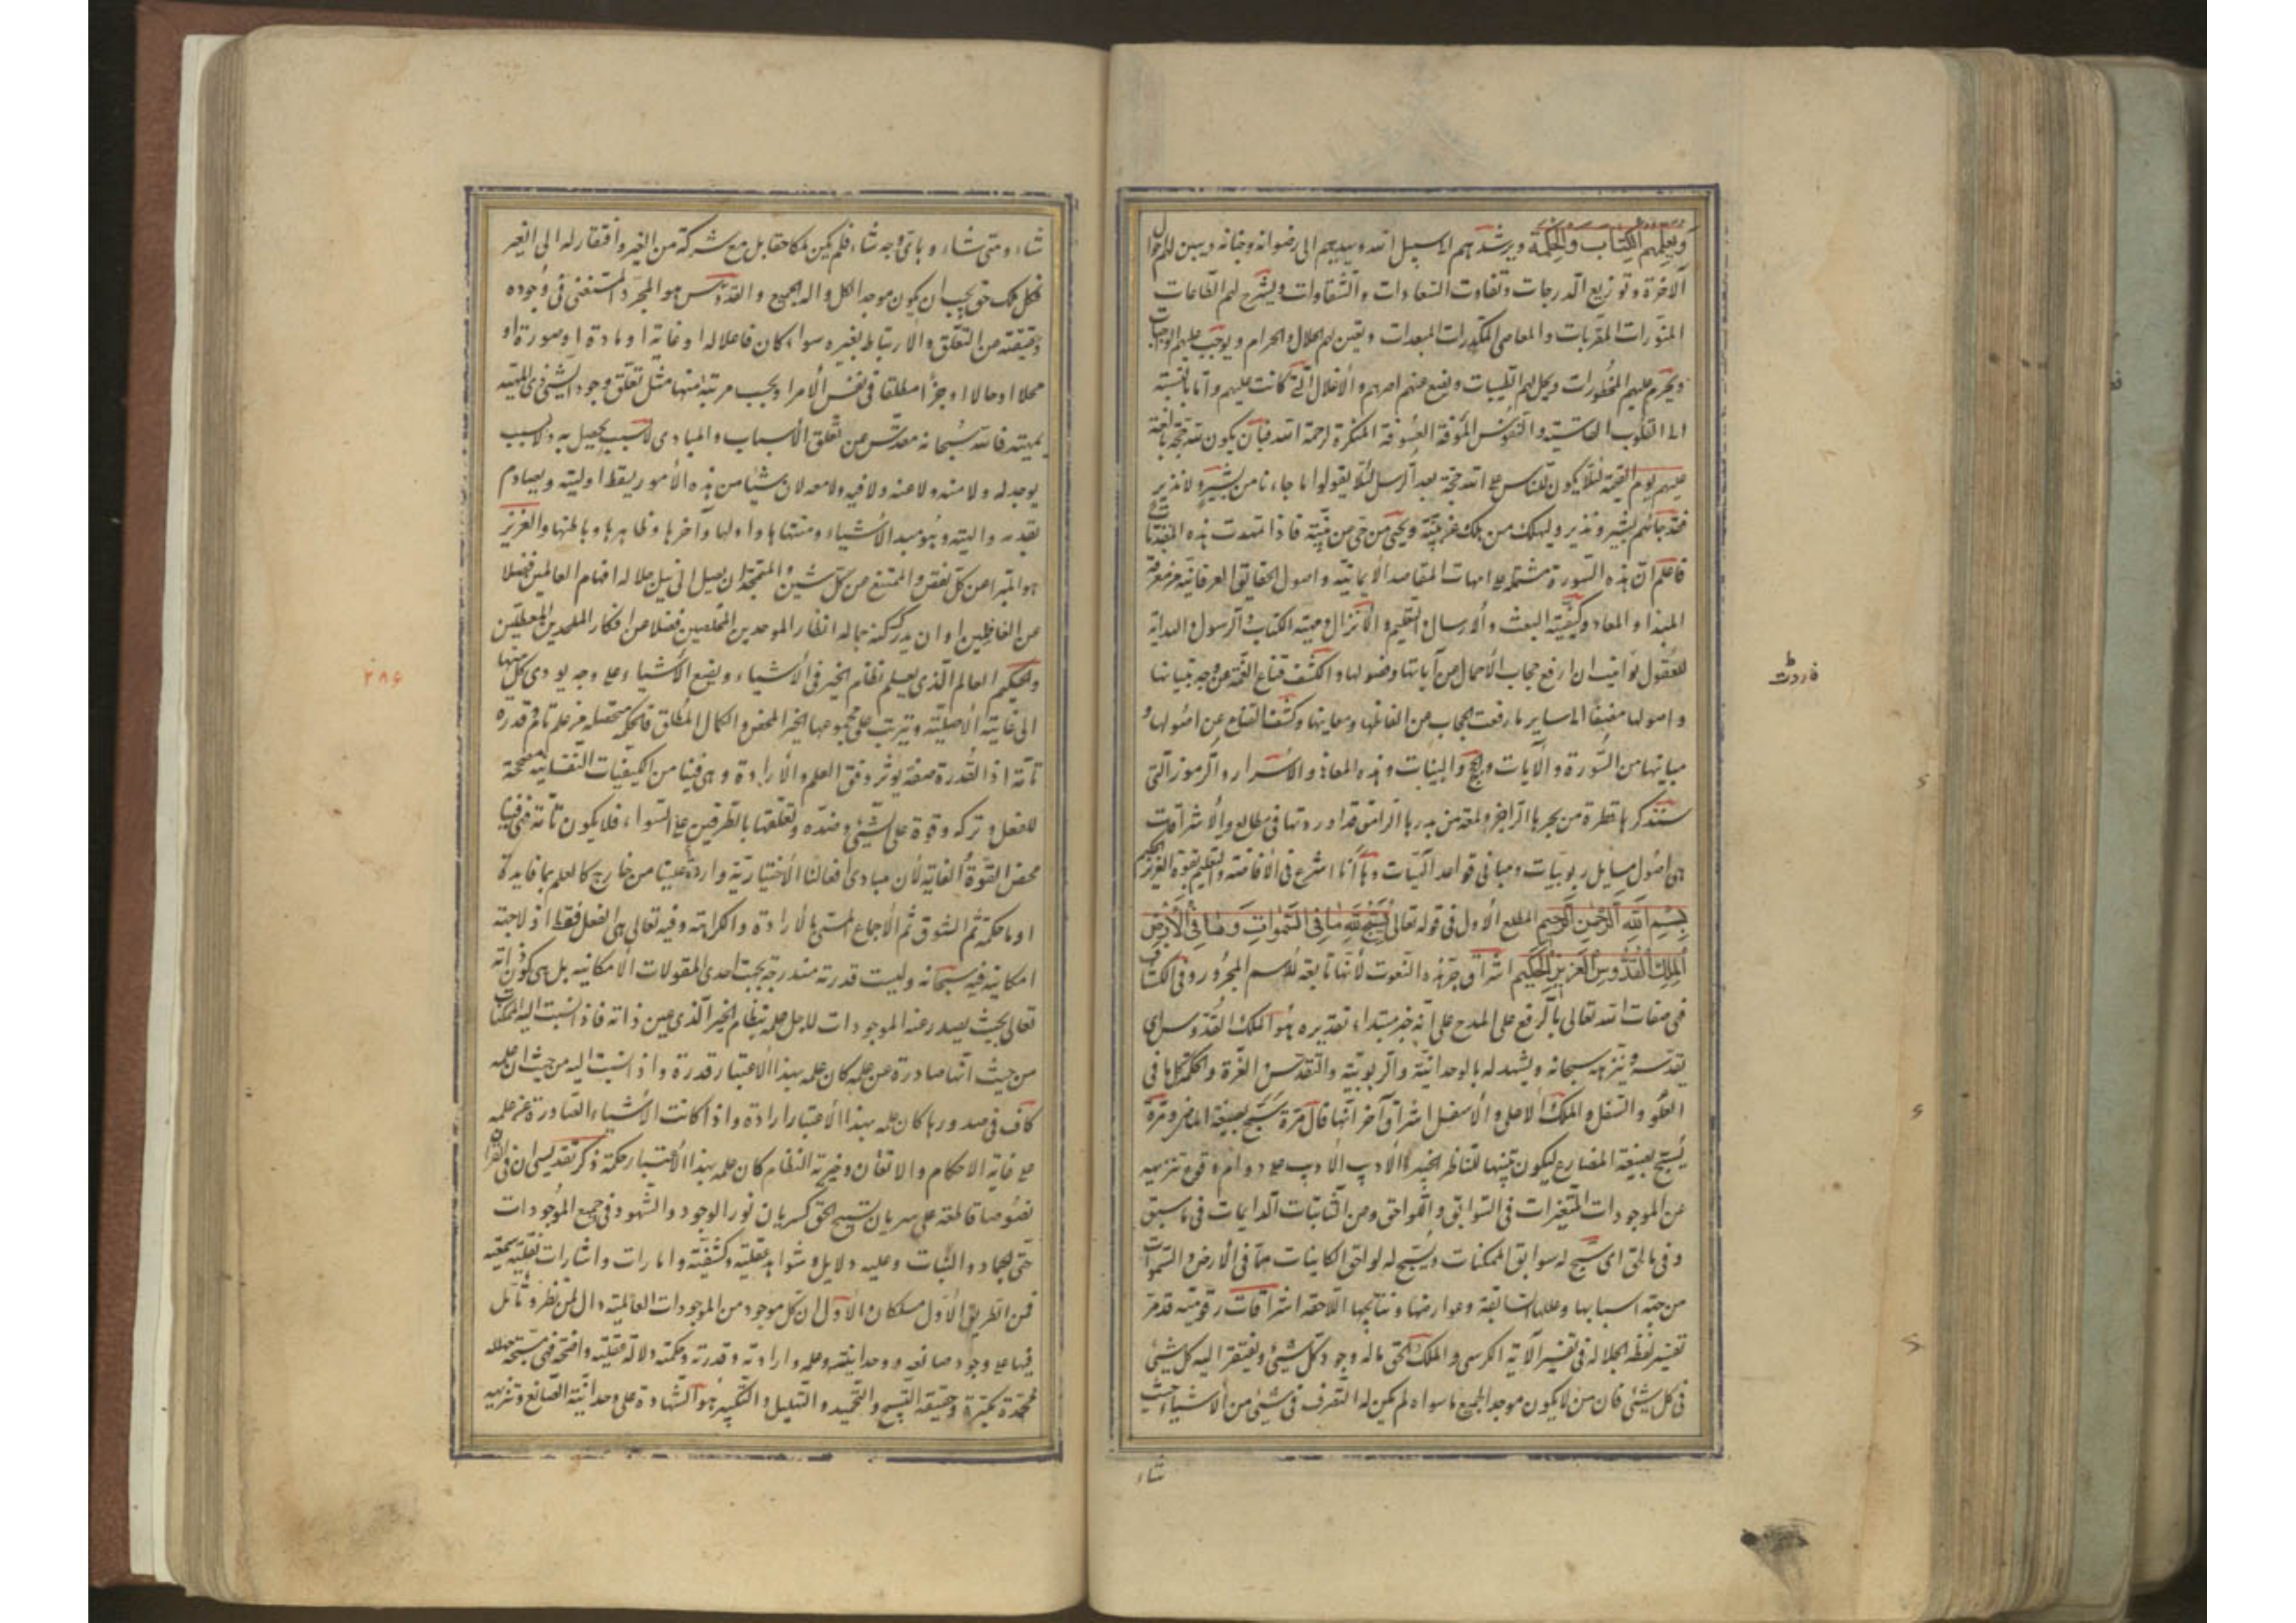 ويعلمهم الكتاب والحكمة ويرشدهم الى سبيل الله ويهديهم الى رضوانه وجنانه ويبين لهم احوال
الآخرة وتوزيع الدرجات وتفاوت السعادات والشقاوات ويشرح لهم الطاعات
المنورات المقربات والمعاصى المكدرات المبعدات ويعين لهم الحلال والحرام ويوجب عليهم الواجبات
ويحرم عليهم المحظورات ويحل لهم الطيبات ويضع عنهم اصرهم والاغلال التى كانت عليهم واما بالنسبة
الى القلوب القاسية والنفوس المؤفة المنكرة لرحمة الله فبأن يكون لله حجة بالغة
عليهم يوم القيمة لئلا يكون للناس على الله حجة بعد الرسل لئلا يقولوا ما جاءنا من بشير ولا نذير
فقد جائهم بشير ونذير وليهلك من هلك عن بينة ويحيى من حى عن بينة فاذا تمهدت هذه المقدمات
فاعلم ان هذه السورة مشتملة على امهات المقاصد الايمانية واصول الحقايق العرفانية من معرفة
المبدا والمعاد وكيفية البعث والارسال والتعليم والانزال ومهية الكتاب والرسول والهداية
للعقول ان ارفع حجاب الاجمال من آياتها وفصولها واكشف قناع الغمة عن وجه بنيانها
واصولها مضيفا الى ساير ما رفعت الحجاب من الفاظها ومعانيها وكشف القناع عن اصولها و
مبانيها من السورة والآيات والحجج والبينات وهذه المعانى والاسرار والرموز التى
سنذكرها قطرة من بحرها الزاخر ولمعة من بدرها قد اوردتها فى مطالع والاشراقات
هى اصول مسايل ربوبيات ومبانى قواعد آلهيات وها أنا اشرع فى الافاضة والتعليم بقوة العزيز الحكيم
بسم الله الرحمن الرحيم المطلع الاول فى قوله تعالى يسبح لله ما فى السموات وما فى الارض
الملك القدوس العزيز الحكيم اشراق جر هذه النعوت لأنها تابعة للاسم المجرور وفى الكشاف
فى صفات الله تعالى بالرفع على المدح على انه خبر مبتداء تقديره هو الملك القدوس اى
يقدسه وينزهه سبحانه ويشهد له بالوحدانية والربوبية والتقدس والعزة والحكمة كل ما فى
العلو والسفل والملك الاعلى والاسفل اشراق آخر انها قال مرة سبح بصيغة الماضى ومرة
يسبح بصيغة المضارع ليكون تنبيها للناظر الخبير الاديب الاريب على دوام وقوع تنزيهه
عن الموجودات المتغيرات فى السوابق واللواحق ومن الثابتات الدايمات فى ما سبق
وفى ما لحق اى سبح له سوابق الممكنات ويسبح له لواحق الكاينات مما فى الارض والسموات
من جهة اسبابها وعللها السابقة وعوارضها ونتايجها اللاحقة اشراقات رقومية قد مر
تفسير لفظة الجلالة فى تفسير الآية الكرسى والملك الحق ما له وجود كل شيئ ويفتقر اليه كل شيئ
فى كل شيئ فان من لا يكون موجد الجميع ما سواه لم يكن له التصرف فى شيئ من الاشياء حيث
شاء
فاردت
شاء ومتى شاء وباى وجه شاء فلم يكن ملكا حقا بل مع شركة من الغير وافتقار له الى الغير
فكل ملك حق يجب ان يكون موجد الكل واله الجميع والقدوس هو المجرد المستغنى فى وجوده
وحقيقته من التعلق والارتباط بغيره سواء كان فاعلا له او غاية او مادة او صورة او
محلا او حالا او جزءا مطلقا فى نفس الامر او بحسب مرتبة منها مثل تعلق وجود الشيئ ذى المهية
بمهيته فالله سبحانه مقدس عن تعلق الأسباب والمبادى لا سبب يحصل به ولا سبب
يوجد له ولا منه ولا عنه ولا فيه ولا معه لان شيئا من هذه الأمور يسقط اوليته ويصادم
تقدمه واليته وهو مبدء الأشياء ومنتهاها واولها وآخرها وظاهرها وباطنها والعزيز
هو المتبرا من كل نقص والممتنع من كل شين والمتمجد ان يصل الى نيل جلاله افهام العالمين فضلا
من الغافلين او ان يدرك كنه جماله انظار الموحدين المخلصين فضلا من افكار الملحدين المعطلين
والحكيم العالم الذى يعلم نظام الخير فى الأشياء ويضع الأشياء على وجه يودى كل منها
الى غايته الاصلية ويترتب على مجموعها الخير المحض والكمال المطلق فالحكمة متحصلة من علم تام وقدرة
تامة اذ القدرة صفة يوثر وفق العلم والارادة وهى فينا من الكيفيات النفسانية مصححة
للفعل وتركه وقوة على الشيئ وضده وتعلقها بالطرفين على السواء فلا يكون تامة فهى فينا
محض القوة ألفاقية لأن مبادى افعالنا الاختيارية واردة علينا من خارج كالعلم بما فايدة
او ما حكمة ثم الشوق ثم الاجماع المسمى بالارادة والكراهة وفيه تعالى هى الفعل فقط اذ لا جهة
امكانية فيه سبحانه وليست قدرته مندرجة تحت احدى المقولات الامكانية بل هى كون ذاته
تعالى بحيث يصدر عنه الموجودات لاجل علمه بنظام الخير الذى عين ذاته فاذا نسبت اليه الممكنات
من حيث انها صادرة عن علمه كان علمه بهذا الاعتبار قدرة واذا نسبت اليه من حيث ان علمه
كاف فى صدورها كان علمه بهذا الاعتبار ارادة واذا كانت الأشياء الصادرة عن علمه
على غاية الاحكام والاتقان وخيرية النظام كان علمه بهذا الاعتبار حكمة ذكر تقديسى ان فى القرآن
نصوصا قاطعة على سريان تسبيح الحق كسريان نور الوجود والشهود فى جميع الموجودات
حتى الجماد والنبات وعليه دلايل وشواهد عقلية وكشفية وامارات واشارات نقلية سمعية
فمن الطريق الاول مسلكان والاول ان كل موجود من الموجودات العالمية دال لمن نظر وتأمل
فيها على وجود صانعه ووحدانيته وعلمه وارادته وقدرته وحكمته دلالة عقلية واضحة فهى مسبحة مهللة
ممجدة مكبرة وحقيقة التسبيح والتحميد والتهليل والتكبير هو الشهادة على وحدانية الصانع وتنزيهه
٢٨٦